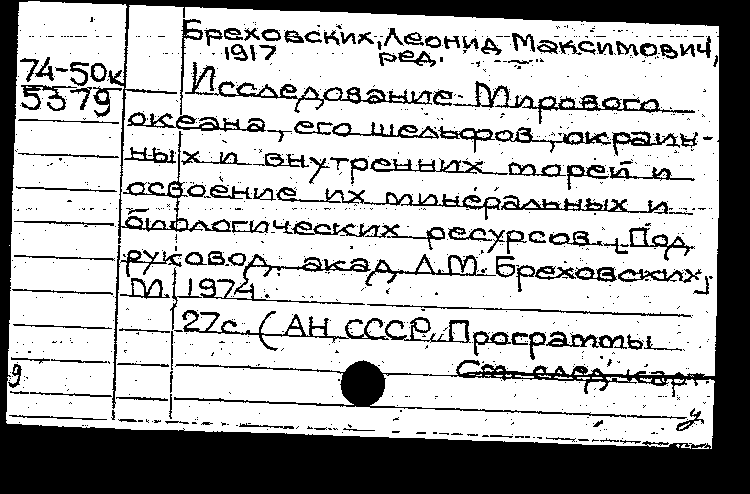 Бреховских, Леонид Максимович,
1917 ред.
74-50к
5379
Исследование Мирового
океана, его шельфов, окраин-
ных и внутренних морей и
освоение их минеральных и
биологических ресурсов. [Под
руковод. акад. Л.М. Бреховских]
М., 1974.
27с. (АН СССР. Программы
См. след. карт.
9
у